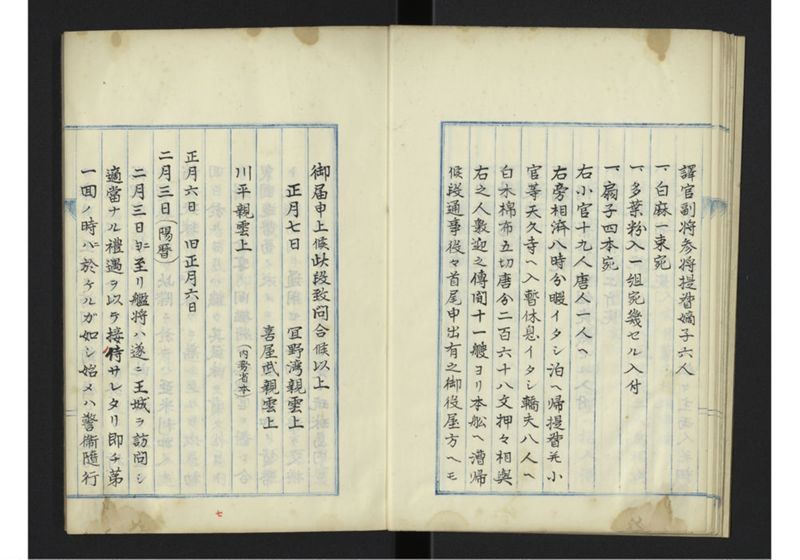 譯官副將參將提督嫡子六人
一、白麻一束宛
一、多葉粉入一組宛幾セル入付
一、扇子四本宛
右小官十九人唐人一人ヘ
右旁相濟八時分暇イタシ泊ヘ帰提督并小
官等天久寺ヘ入暫休息イタシ轎夫八人ヘ
白木棉布五切唐分二百六十八文押々相與
右之人數迎之傳間十一艘ヨリ本舩ヘ漕帰
候段通事役々首尾申出有之御役屋方ヘモ
御届申上候此段致問合候以上
正月七日 宜野湾親雲上
喜屋武親雲上
川平親雲上 (内務省本)
正月六日 旧正月六日
二月三日(陽暦)
二月三日ニ至リ艦將ハ遂ニ王城ヲ訪問シ
適當ナル禮遇ヲ以ラ接待サレタリ即チ第
一回ノ時ハ於ケルガ如シ始メハ警衞隨行
七